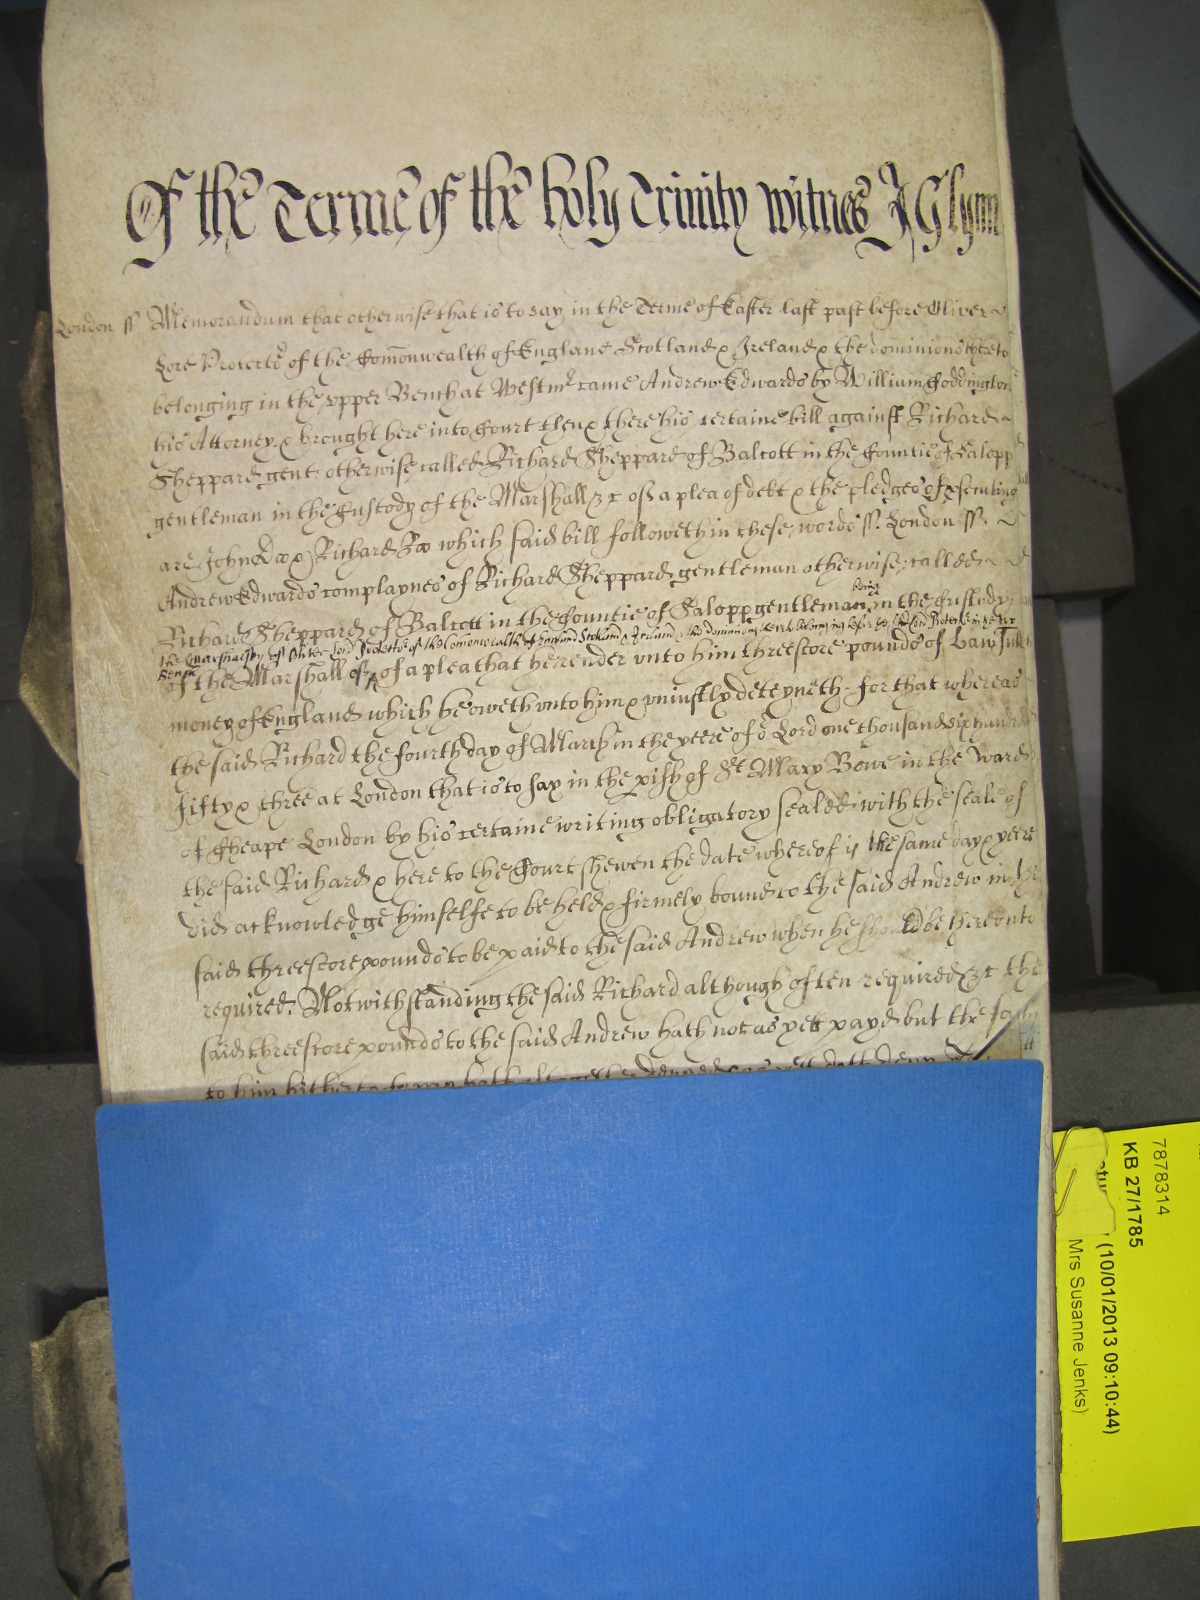 Of the Terme of the holy Trinity witnes J Glynn
London ss Memorandum that otherwise that is to say in the Terme of Easter last past before Oliver
Lord Protector of the Comonwealth of England Scotland & Ireland & the dominions thereto
belonging in the upper Bench at Westmr came Andrew Edwards by William Coddington
his Attorney & brought here into Court then & there his certaine bill against Richard
Sheppard gent otherwise called Richard Sheppard of Balcott in the Countie of Salopp
gentleman in the Custody of the Marshall &c of a plea of debt & the pledges of prosecuting
are John Doo & Richard Roo which said bill followeth in these words ss. London ss.
Andrew Edwards complaynes of Richard Sheppard gentleman otherwise called
being
Richard Sheppard of Balcott in the Countie of Salopp gentleman in the Custody
the Marshalsey of Oliver Lord Protector of the Comonwealth of England Scotland & Ireland & the dominions thereto belonging before the said Lord Protector in the upper
Bench
of the Marshall &c of a plea that he render unto him threescore pounds of lawfull
money of England which he oweth unto him & uniustly deteyneth for that whereas
the said Richard the fourth day of March in the yeere of or Lord one thousand six hundred
fifty & three at London that is to say in the pish of St Mary Bowe in the Ward
of Cheape London by his certaine writing obligatory sealed with the seale of
the said Richard & here to the Court shewen the date whereof is the same day & yeere
did acknowledge himselfe to be held & firmely bound to the said Andrew in the
said threescore pounds to be paid to the said Andrew when he should be thereonto
required. Notwithstanding the said Richard although often required &c the
said threescore pounds to the said Andrew hath not as yett payd but the same
to him hitherto to pay hath altogether denyed & as yett doth deny
7878314
KB 27/1785
(10/01/2013 09:10:44)
Mrs Susanne Jenks)